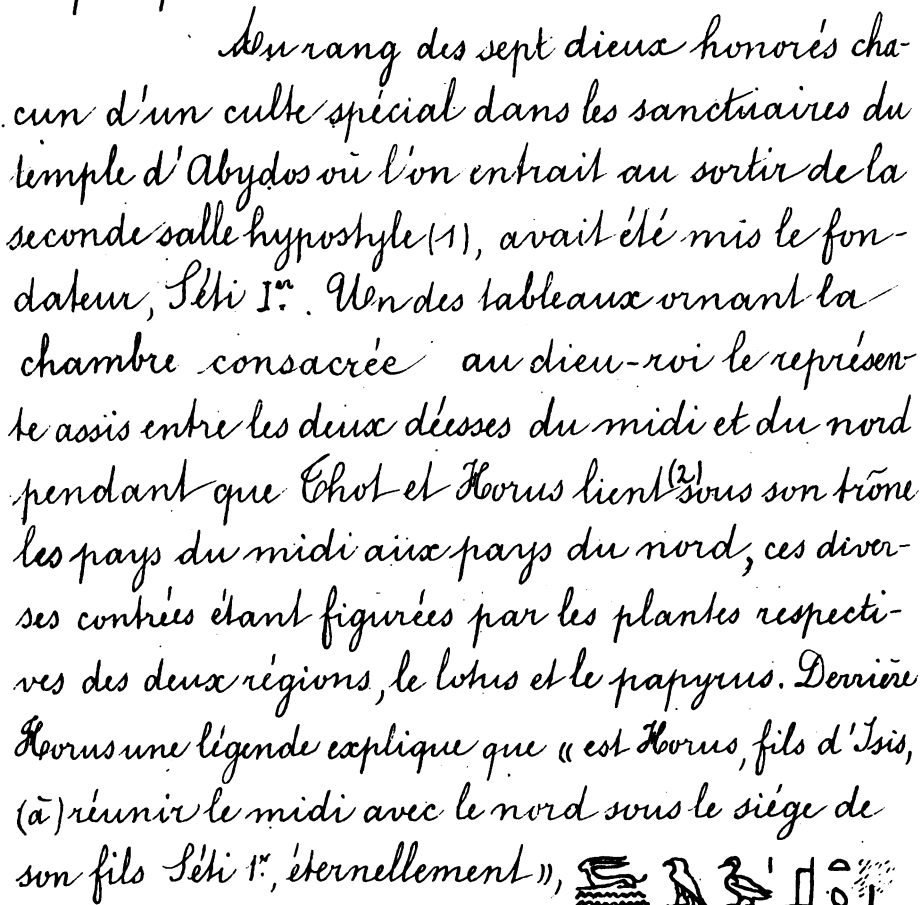 Au rang des sept dieux honorés cha-
cun d'un culte spécial dans les sanctuaires du
temple d'Abydos où l'on entrait au sortir de la
seconde salle hypostyle (1), avait été mis le fon-
dateur, Séti Ier. Un des tableaux ornant la
chambre consacrée au dieu-roi le représen-
te assis entre les deux déesses du midi et du nord
pendant que Thot et Horus lient (2) sous son trône
les pays du midi aux pays du nord, ces diver-
ses contrées étant figurées par les plantes respecti-
ves des deux régions, le lotus et le papyrus. Derrière
Horus une légende explique que « est Horus, fils d'Isis,
(à) réunir le midi avec le nord sous le siége de
son fils Séti 1er, éternellement »,